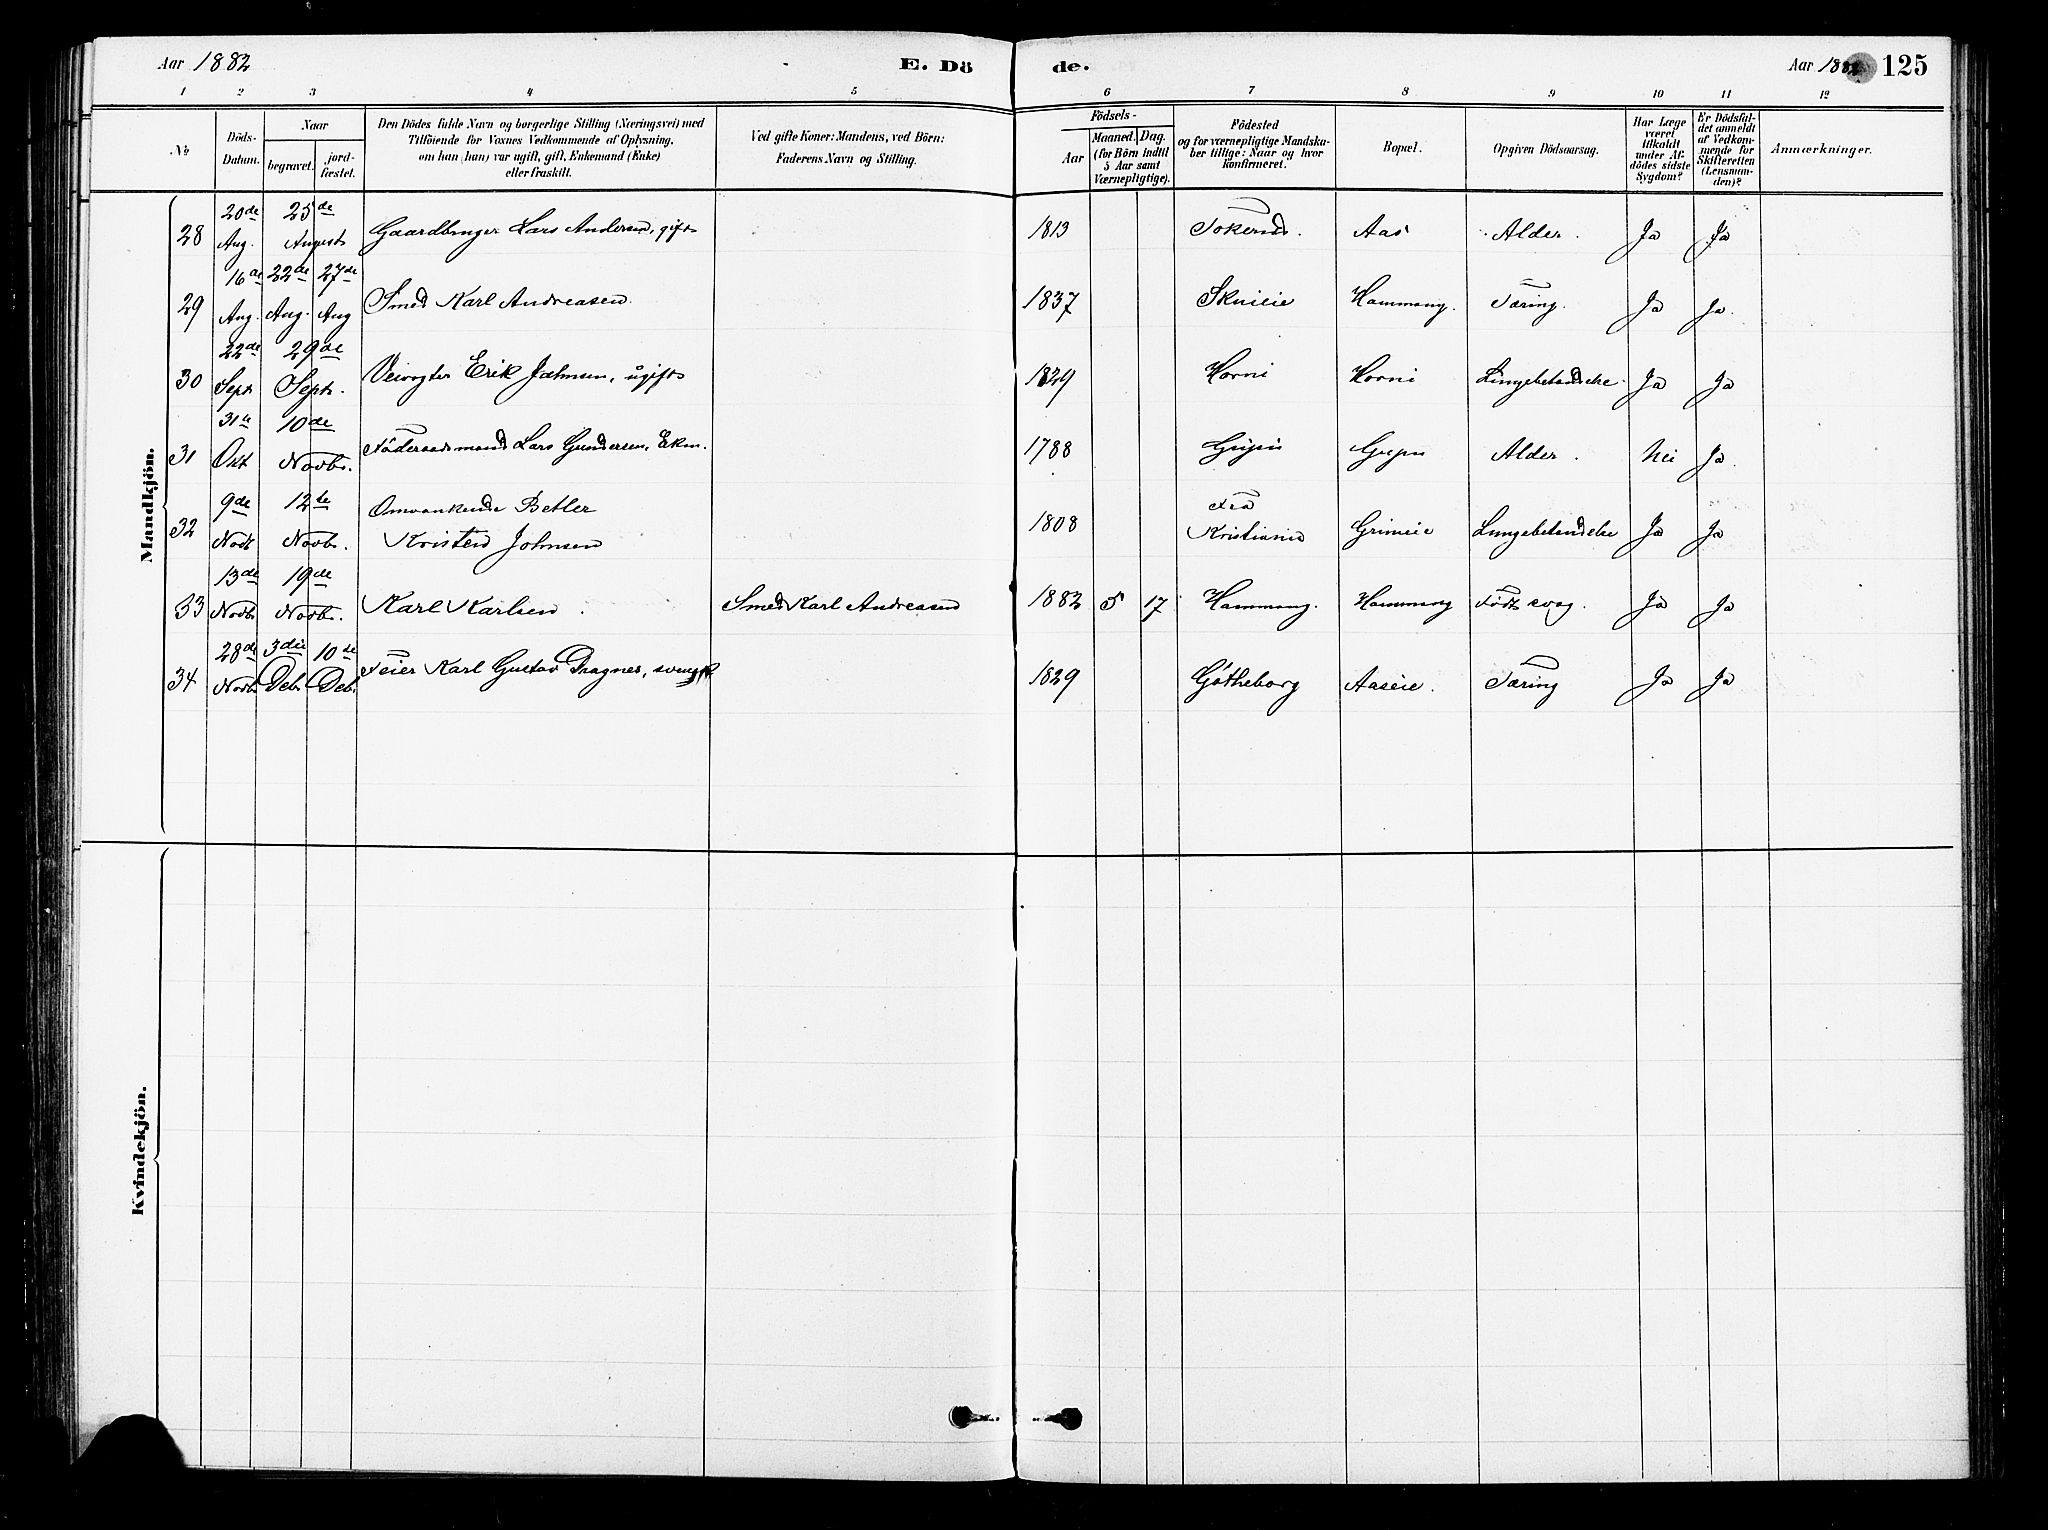 Aar 1882
E. Dö
de.
Aar 1882
125
1 2 3 4 5 6 7 8 9 10 11 12
No
Döds-
Datum.
Naar
begravet.
jord-
fæstet.
Den Dödes fulde Navn og borgerlige Stilling (Næringsvei) med
Tilföiende for Voxnes Vedkommende af Oplysning,
om han (hun) var ugift, gift, Enkemand (Enke)
eller fraskilt.
Ved gifte Koner: Mandens, ved Börn:
Faderens Navn og Stilling.
Födsels-
Aar
Maaned. Dag.
(for Börn indtil
5 Aar samt
Værnepligtige).
Födested
og for værnepligtige Mandska-
ber tillige: Naar og hvor
konfirmeret.
Bopæl.
Opgiven Dödsaarsag.
Har Læge
været
tilkaldt
under Af-
dödes sidste
Sygdom?
Er Dödsfal-
det anmeldt
af Vedkom-
mende for
Skifteretten
(Lensman-
den)?
Anmærkninger.
Mandkjön.
28 20de Aug. 25de August Gaardbruger Lars Andersen, gift 1813 Tokerud. Aas Alder. Ja Ja
29 16de Aug. 22de Aug. 27de Aug Smed Karl Andreasen. 1837 Skuieie Hammang. Tæring. Ja Ja.
30 22de Sept 29de Sept. Veivogter Erik Jahnsen, ugift 1829 Horni Horni Lungebetændelse. Ja Ja
31 31te Okt 10de Novbr. Föderaadsmand Lars Gundersen, Ekm. 1788 Alder. Nei Ja.
32 9de Novb 12te Novbr. Omvankende Betler
Kristen Johnsen 1808 Fra
Kristiania Grimeie Lungebetændelse Ja Ja
33 13de Novbr 19de Novbr. Karl Karlsen. Smed Karl Andreasen 1882 5 17 Hammang. Hammang Födt svag. Ja Ja
34 28de Novbr 3die Debr 10de Debr Feier Karl Gustav Dragner, svensk 1829 Götheborg Aaseie. Tæring Ja Ja
Kvindekjön.